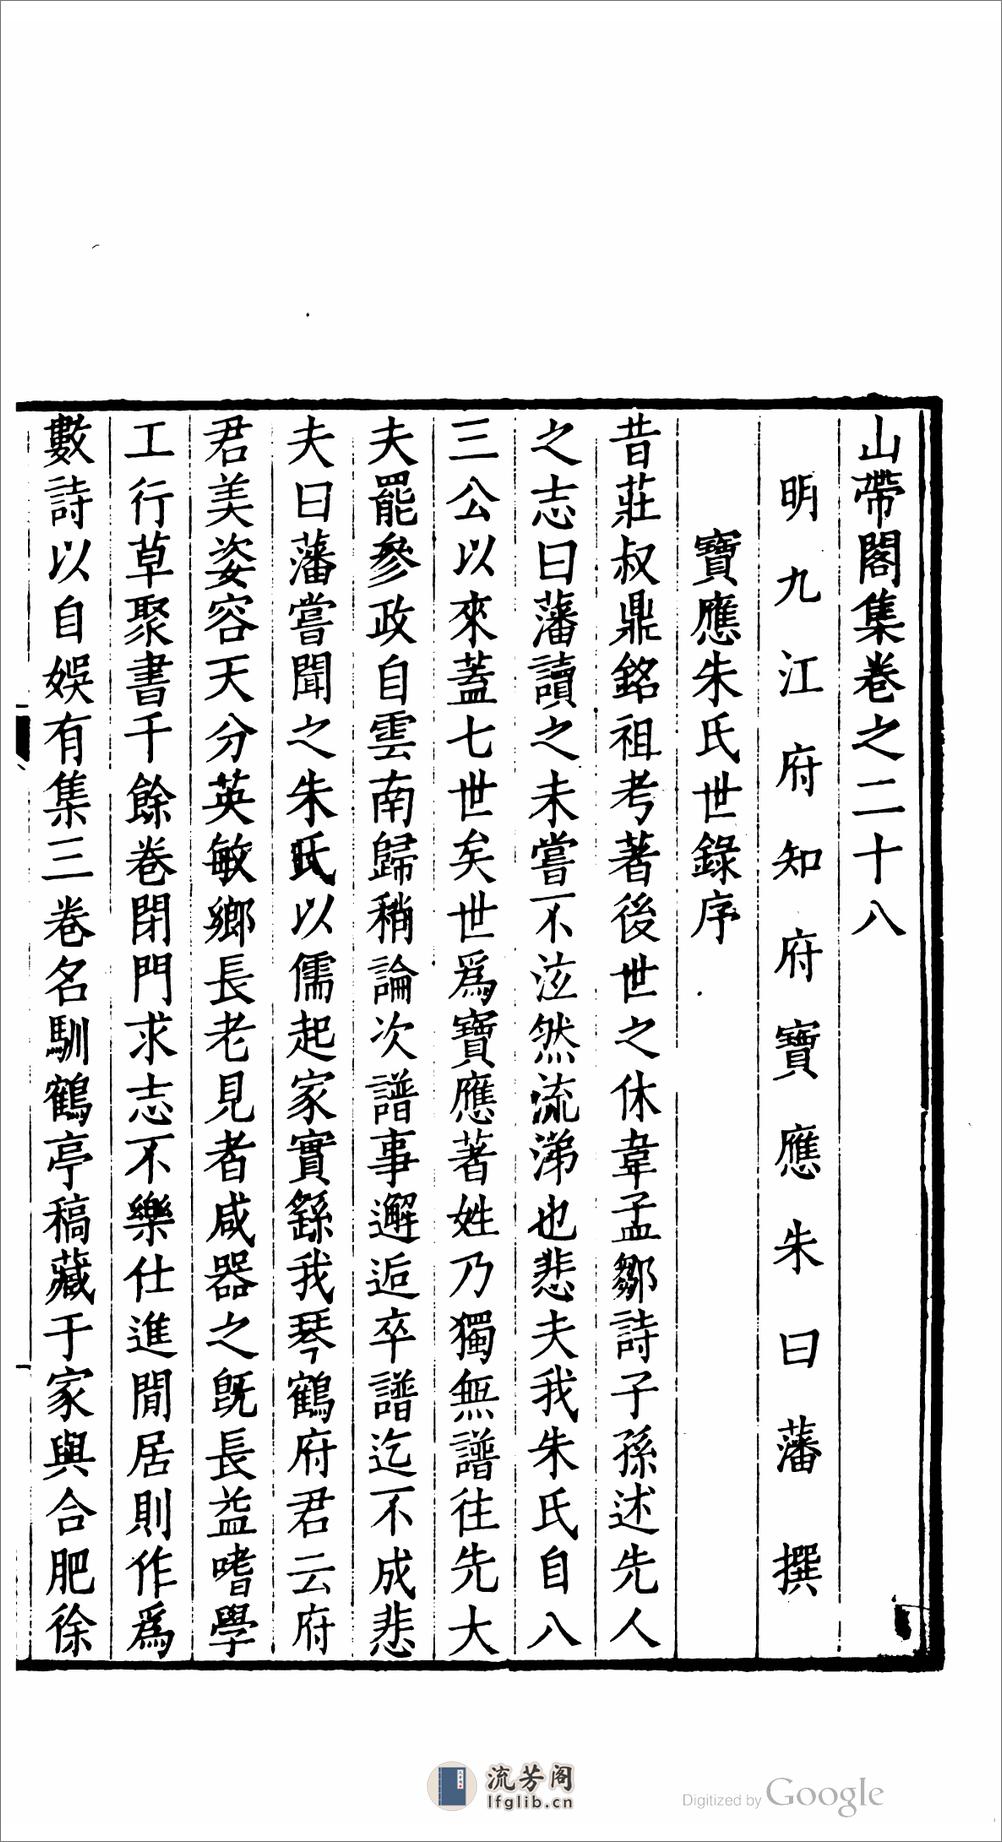 山帶閣集卷之二十八
明九江府知府寶應朱曰藩撰
寶應朱氏世錄序
昔莊叔鼎銘祖考著後世之休韋孟鄒詩子孫述先人
之志曰藩讀之未嘗不泫然流涕也悲夫我朱氏自八
三公以來蓋七世矣世爲寶應著姓乃獨無譜往先大
夫罷參政自雲南歸稍論次譜事邂逅卒譜迄不成悲
夫曰藩嘗聞之朱氏以儒起家實繇我琴鶴府君云府
君美姿容天分英敏鄉長老見者咸器之旣長益嗜學
工行草聚書千餘卷閉門求志不樂仕進閒居則作爲
數詩以自娛有集三卷名馴鶴亭稿藏于家與合肥徐
流芳阁
lfglib.cn
Digitized by Google